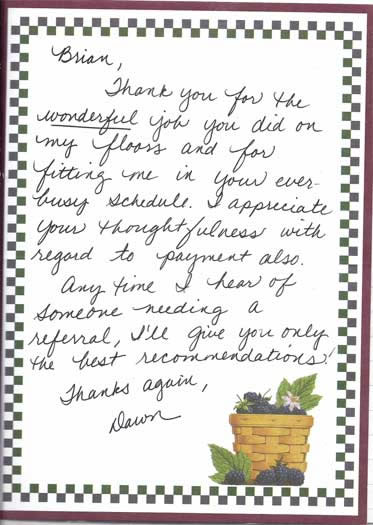 Brian,
Thank you for the
wonderful job you did on
my floors and for
fitting me in your ever-
busy schedule. I appreciate
your thoughtfulness with
regard to payment also.
Any time I hear of
someone needing a
referral, I'll give you only
the best recommendations!
Thanks again,
Dawn